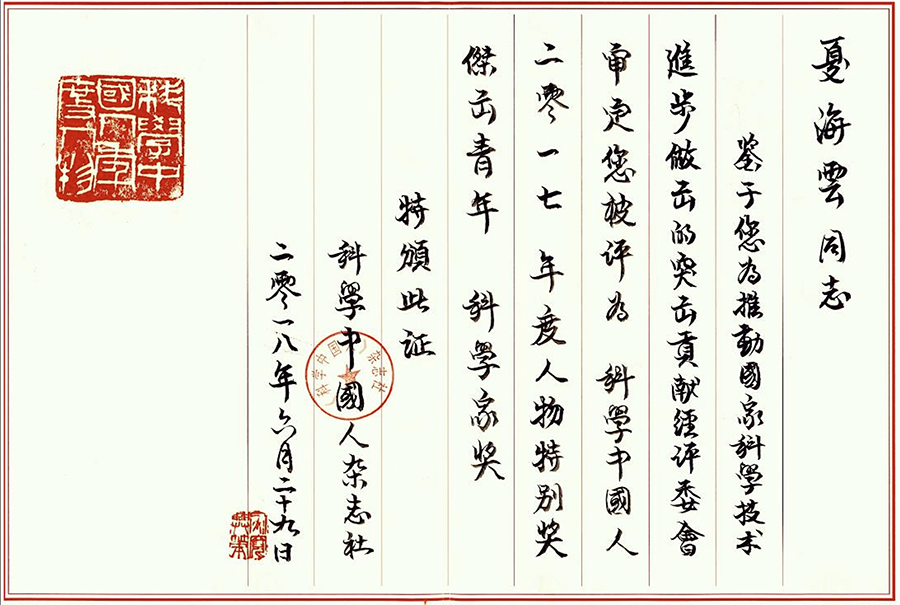 夏海雲同志
鉴于您為推動國家科學技术
進步做出的突出貢献經评委會
审定您被评為 科學中國人
二零一七 年度人物特别奖
傑出青年 科學家奖
特頒此证
科學中國人杂志社
二零一八年六月二十九日
科學中國人年度人物
科学中国人杂志社